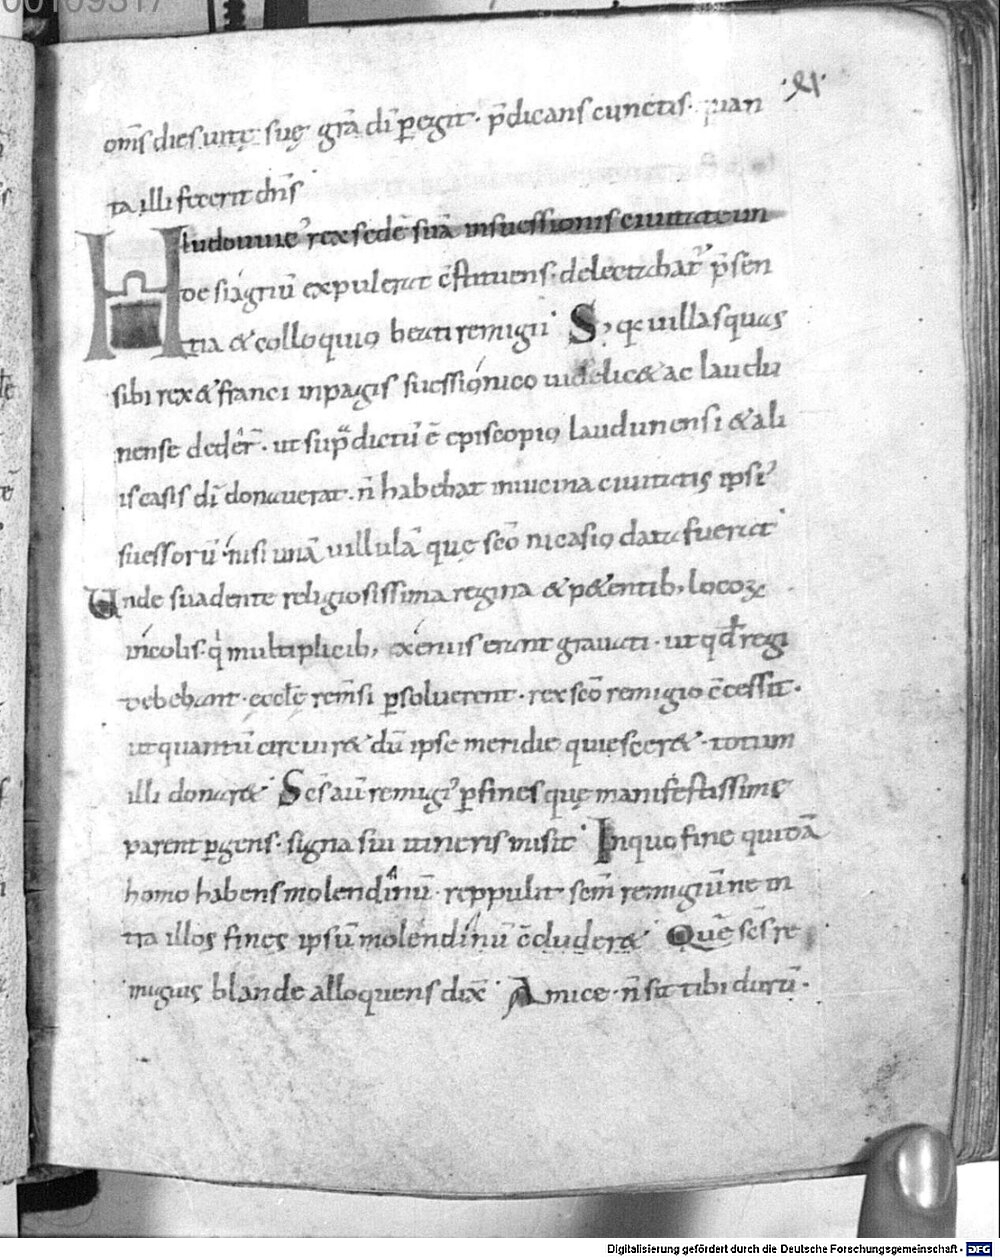 00109317
·XI·
om̄s dies uitę suę gr̄a dī ꝑegit· p̄dicans cunctis· quan
ta illi fecerit dn̄s
Hludouuic᾽ rex sedē suā in suessionis ciuitate un
de siagriū expulerat c̄stituens· delectabat᾽ p̄sen
tia & colloquio beati remigii· Sꝫ q; uillas quas
sibi rex & franci in pagis suessionico uidelic& ac laudu
nense deder̄· ut sup̄dictū ē episcopio laudunensi & ali
is casis dī donauerat· n̄ habebat in uicina ciuitatis ipsi᾽
suessorū· nisi unā uillulā quę sc̄o nicasio data fuerat·
Unde suadente religiosissima regina & p&entib; locoꝝ
incolis· q̇ multiplicib; exeniis erant grauati· ut qd̄ regi
debebant· eccłę rem̄si ꝑsoluerent· rex sc̄o remigio c̄cessit·
ut quantū circuir& dū ipse meridie quiescer&· totum
illi donar&· Sc̄s aū remigi᾽ ꝑ fines quę manifestissime
parent ꝑgens· signa sui itineris misit· In quo fine quidā
homo habens molendinū· reppulit sc̄m remigiū ne in
tra illos fines ipsū molendinū c̄cluder&· Quē sc̄s re
migius blande alloquens dix̄· Amice· n̄ sit tibi durū·
Digitalisierung gefördert durch die Deutsche Forschungsgemeinschaft - DFG